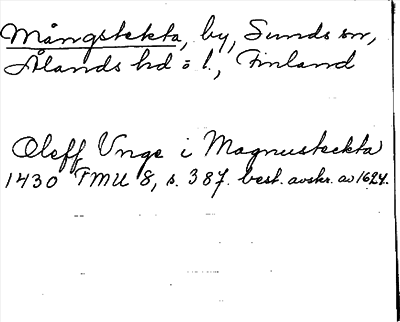 Mångstekta, by, Sunds sn,
Ålands hd o l., Finland
Oleff Unge i Magnusteckta
1430 FMU 8, s. 387. best. avskr. av 1624.